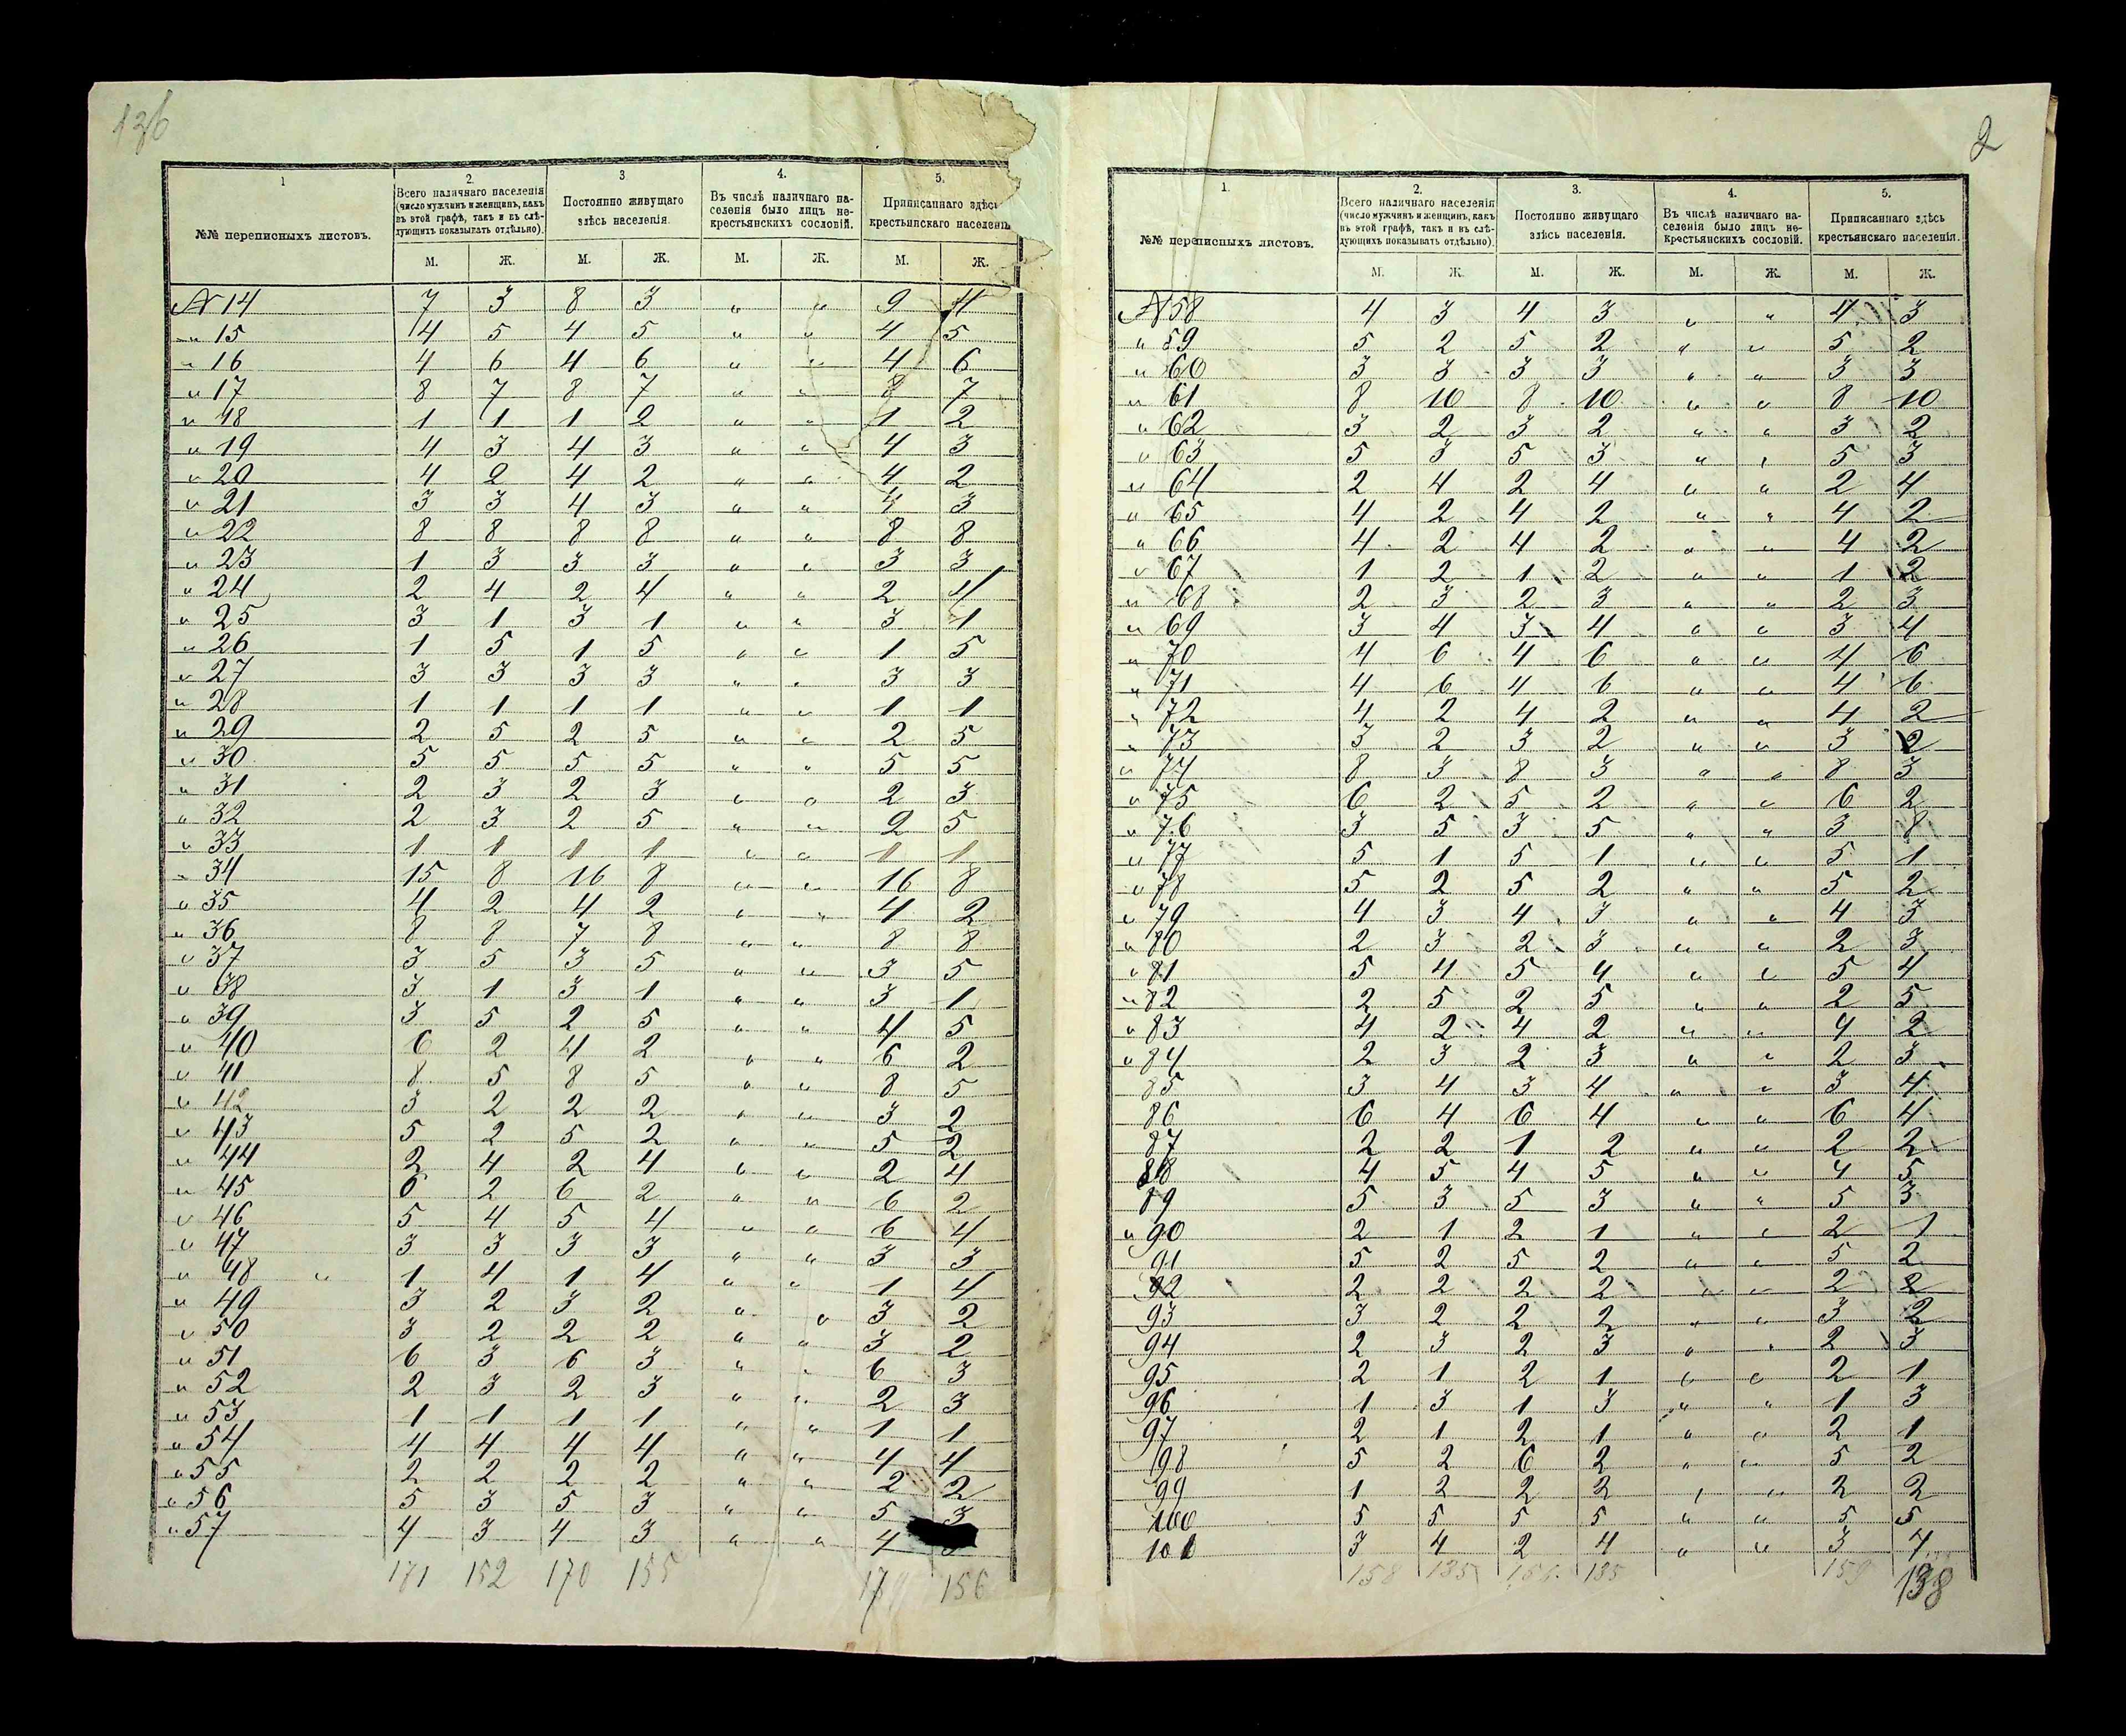 136
1 2. 3 4. 5.
№№ переписныхъ листовъ. Всего наличнаго населенія (число мужчинъ и женщинъ, какъ въ этой графѣ, такъ и въ слѣдующихъ показывать отдѣльно). Постоянно живущаго здѣсь населенія. Въ числѣ наличнаго населенія было лицъ некрестьянскихъ сословій. Приписаннаго здѣсь крестьянскаго населенія
М. Ж. М. Ж. М. Ж. М. Ж.
№ 14 7 3 8 3 " " 9 4
" 15 4 5 4 5 " " 4 5
" 16 4 6 4 6 " " 4 6
" 17 8 7 8 7 " " 8 7
" 18 1 1 1 2 " " 1 2
" 19 4 3 4 3 " " 4 3
" 20 4 2 4 2 " " 4 2
" 21 3 3 4 3 " " 4 3
" 22 8 8 8 8 " " 8 8
" 23 1 3 3 3 " " 3 3
" 24 2 4 2 4 " " 2 4
" 25 3 1 3 1 " " 3 1
" 26 1 5 1 5 " " 1 5
" 27 3 3 3 3 " " 3 3
" 28 1 1 1 1 " " 1 1
" 29 2 5 2 5 " " 2 5
" 30 5 5 5 5 " " 5 5
" 31 2 3 2 3 " " 2 3
" 32 2 3 2 5 " " 2 5
" 33 1 1 1 1 " " 1 1
" 34 15 8 16 8 " " 16 8
" 35 4 2 4 2 " " 4 2
" 36 8 8 7 8 " " 8 8
" 37 3 5 3 5 " " 3 5
" 38 3 1 3 1 " " 3 1
" 39 3 5 2 5 " " 4 5
" 40 6 2 4 2 " " 6 2
" 41 8 5 8 5 " " 8 5
" 42 3 2 2 2 " " 3 2
" 43 5 2 5 2 " " 5 2
" 44 2 4 2 4 " " 2 4
" 45 6 2 6 2 " " 6 2
" 46 5 4 5 4 " " 6 4
" 47 3 3 3 3 " " 3 3
" 48 " 1 4 1 4 " " 1 4
" 49 3 2 3 2 " " 3 2
" 50 3 2 2 2 " " 3 2
" 51 6 3 6 3 " " 6 3
" 52 2 3 2 3 " " 2 3
" 53 1 1 1 1 " " 1 1
" 54 4 4 4 4 " " 4 4
" 55 2 2 2 2 " " 2 2
" 56 5 3 5 3 " " 5 3
" 57 4 3 4 3 " " 4
171 152 170 155 156
2
1. 2. 3. 4. 5.
№№ переписныхъ листовъ. Всего наличнаго населенія (число мужчинъ и женщинъ, какъ въ этой графѣ, такъ и въ слѣдующихъ показывать отдѣльно) Постоянно живущаго здѣсь населенія. Въ числѣ наличнаго населенія было лицъ некрестьянскихъ сословій. Приписаннаго здѣсь крестьянскаго населенія.
М. Ж. М. Ж. М. Ж. М. Ж.
№ 58 4 3 4 3 " " 4 3
" 59 5 2 5 2 " " 5 2
" 60 3 3 3 3 " " 3 3
" 61 8 10 8 10 " " 8 10
" 62 3 2 3 2 " " 3 2
" 63 5 3 5 3 " " 5 3
" 64 2 4 2 4 " " 2 4
" 65 4 2 4 2 " " 4 2
" 66 4 2 4 2 " " 4 2
" 67 1 2 1 2 " " 1 2
" 68 2 3 2 3 " " 2 3
" 69 3 4 3 4 " " 3 4
" 70 4 6 4 6 " " 4 6
" 71 4 6 4 6 " " 4 6
" 72 4 2 4 2 " " 4 2
" 73 3 2 3 2 " " 3 2
" 74 8 3 8 3 " " 8 3
" 75 6 2 5 2 " " 6 2
" 76 3 5 3 5 " " 3 8
" 77 5 1 5 1 " " 5 1
" 78 5 2 5 2 " " 5 2
" 79 4 3 4 3 " " 4 3
" 80 2 3 2 3 " " 2 3
" 81 5 4 5 4 " " 5 4
" 82 2 5 2 5 " " 2 5
" 83 4 2 4 2 " " 4 2
" 84 2 3 2 3 " " 2 3
85 3 4 3 4 " " 3 4
86 6 4 6 4 " " 6 4
87 2 2 1 2 " " 2 2
88 4 5 4 5 " " 4 5
89 5 3 5 3 " " 5 3
" 90 2 1 2 1 " " 2 1
91 5 2 5 2 " " 5 2
92 2 2 2 2 " " 2 2
93 3 2 2 2 " " 3 2
94 2 3 2 3 " " 2 3
95 2 1 2 1 " " 2 1
96 1 3 1 3 " " 1 3
97 2 1 2 1 " " 2 1
98 5 2 6 2 " " 5 2
99 1 2 2 2 " " 2 2
100 5 5 5 5 " " 5 5
101 3 4 2 4 " " 3 4
158 135 135 159 138